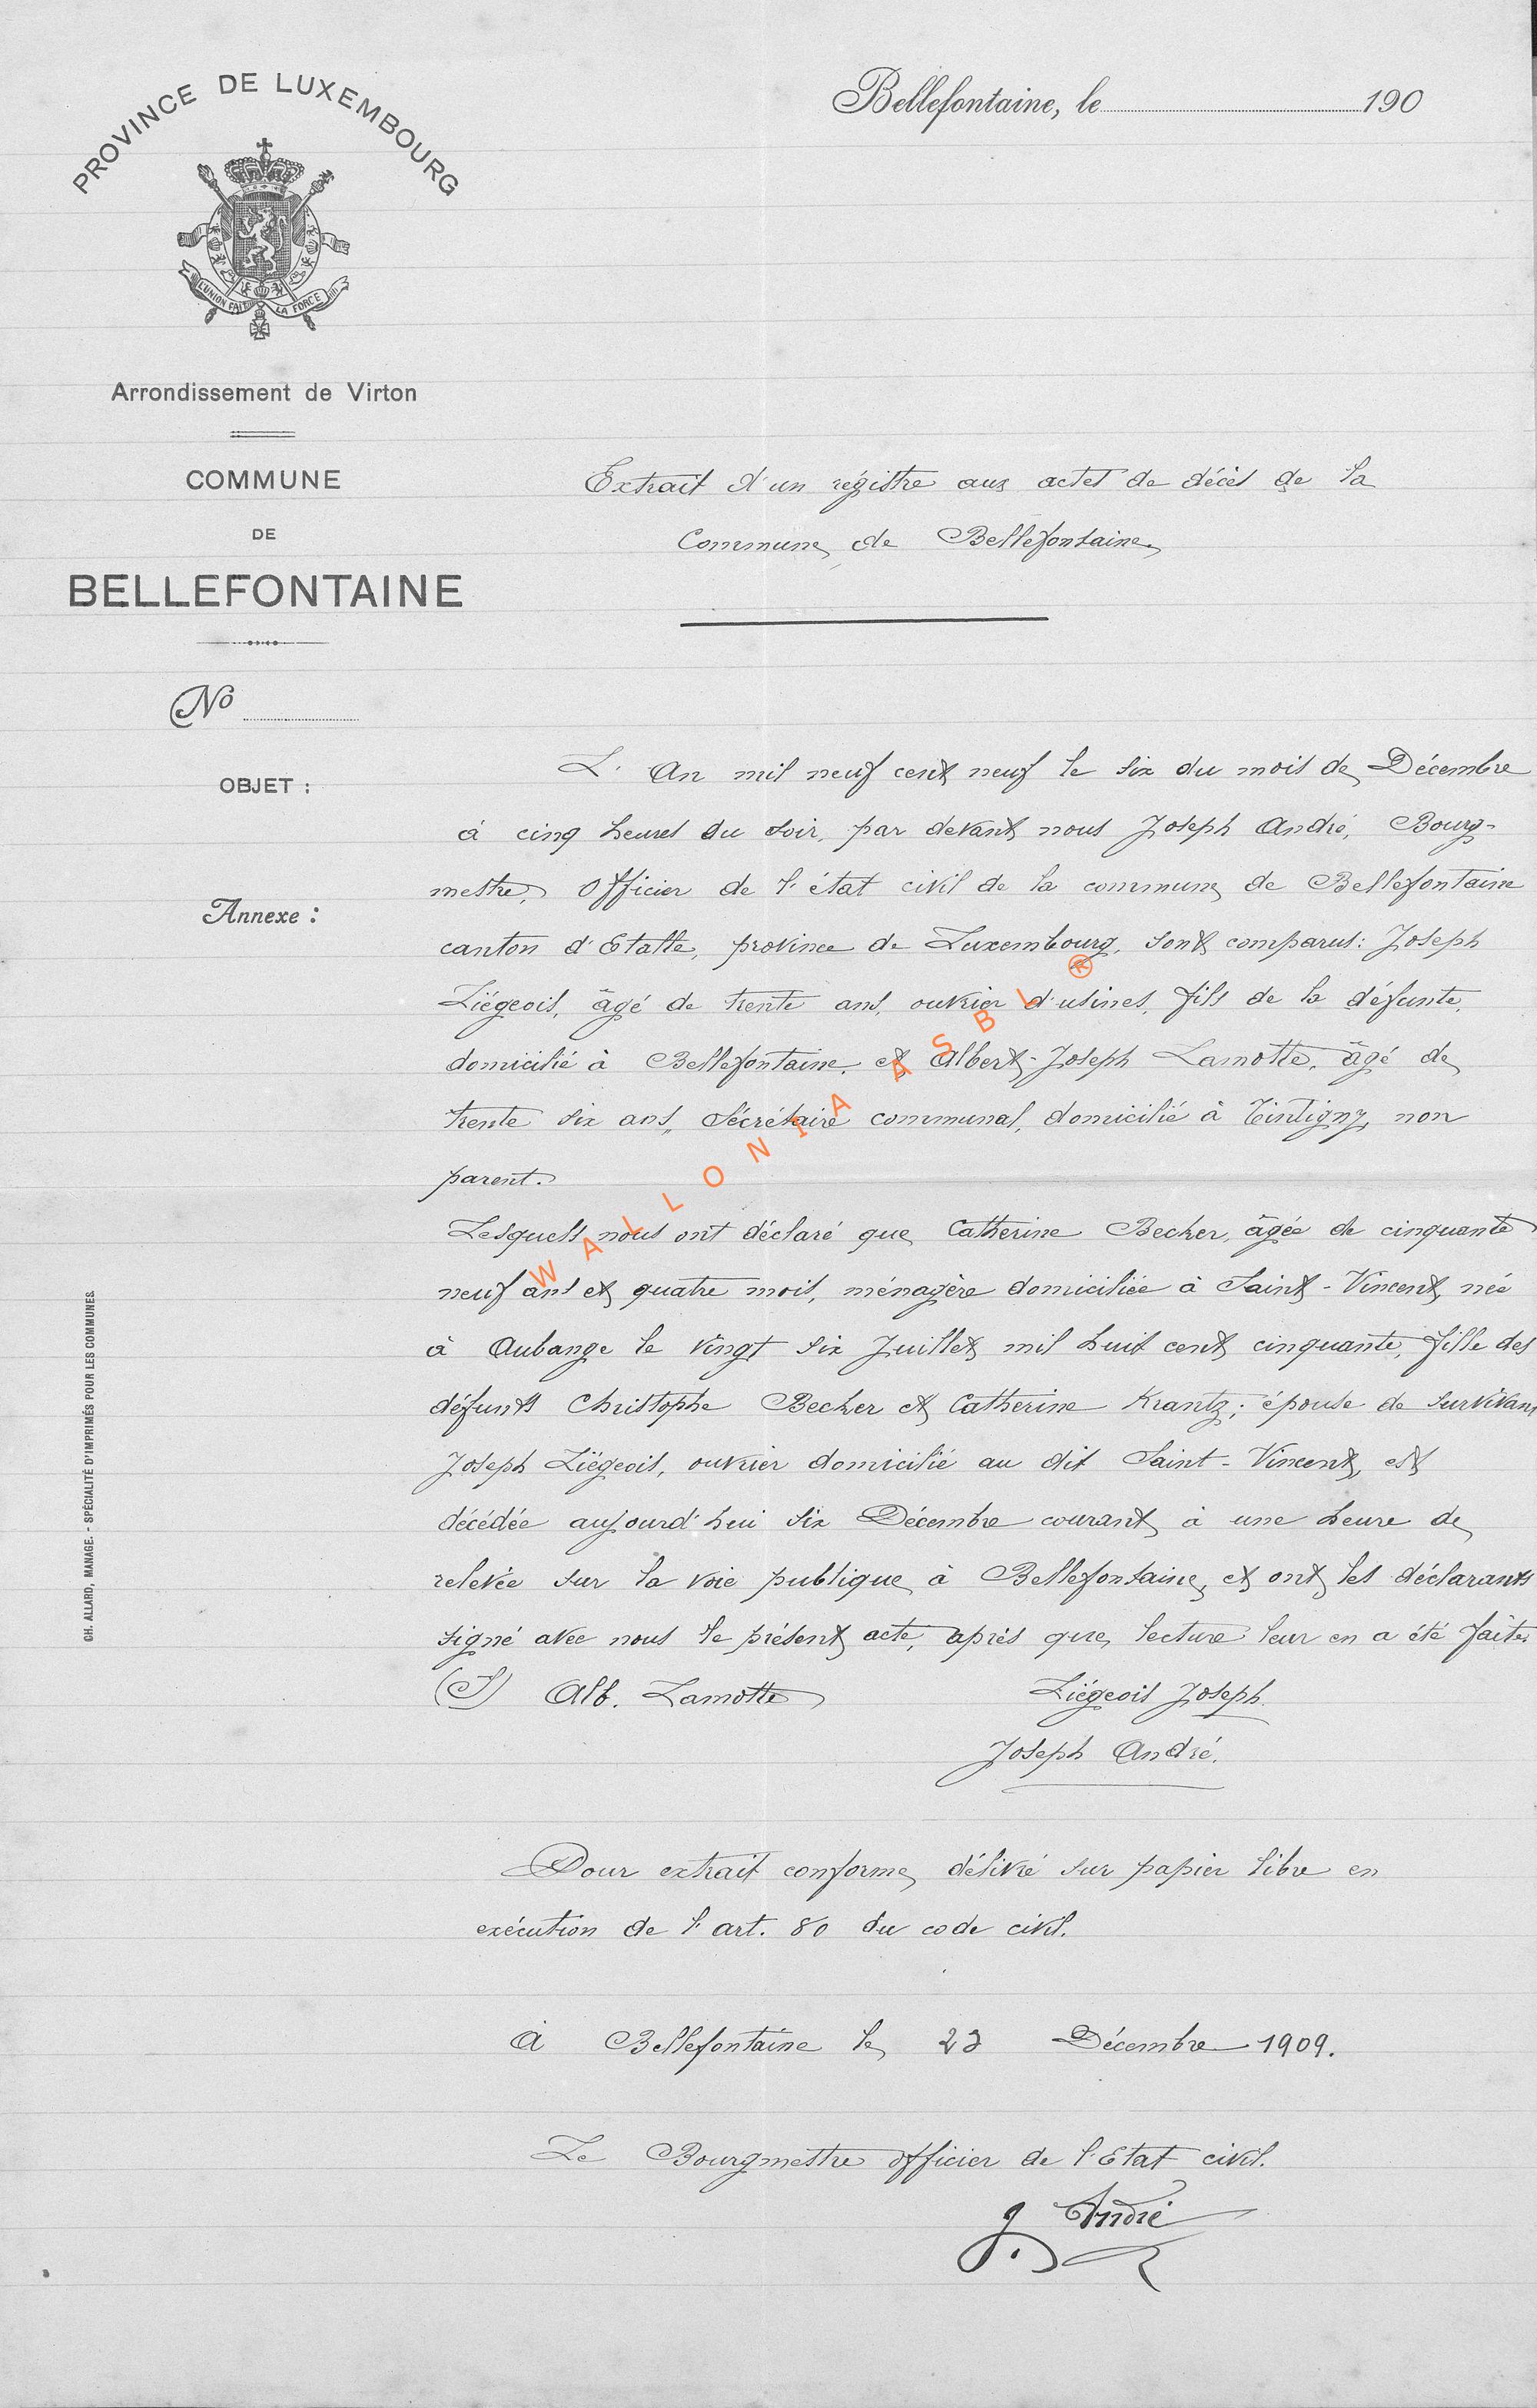 PROVINCE DE LUXEMBOURG
L'UNION FAIT LA FORCE
Arrondissement de Virton
COMMUNE
DE
BELLEFONTAINE
No
OBJET :
Annexe :
CH. ALLARD, MANAGE. - SPÉCIALITÉ D'IMPRIMÉS POUR LES COMMUNES
Bellefontaine, le 190
Extrait d'un régistre aux actes de décès de la
Commune de Bellefontaine
L'An mil neuf cent neuf le six du mois de Décembre
à cinq heures du soir, par devant nous Joseph André, Bourg-
mestre, Officier de l'état civil de la commune de Bellefontaine
canton d'Etalle, province de Luxembourg, sont comparus: Joseph
Liégeois, âgé de trente ans, ouvrier d'usines, fils de la défunte,
domicilié à Bellefontaine, et Albert-Joseph Lamotte, âgé de
trente six ans, Sécrétaire communal, domicilié à Tintigny, non
parent.
Lesquels nous ont déclaré que Catherine Becker, âgée de cinquante
neuf ans et quatre mois, ménagère domiciliée à Saint-Vincent, née
à Aubange le vingt six Juillet mil huit cent cinquante, fille des
défunts Christophe Becker et Catherine Krantz; épouse de survivant
Joseph Liégeois, ouvrier domicilié au dit Saint-Vincent, est
décédée aujourd'hui six Décembre courant à une heure de
relevée sur la voie publique à Bellefontaine, et ont les déclarants
signé avec nous le présent acte, après que lecture leur en a été faite
(S) Alb. Lamotte Liégeois Joseph
Joseph André.
Pour extrait conforme délivré sur papier libre en
exécution de l'art. 80 du code civil.
A Bellefontaine le 23 Décembre 1909.
Le Bourgmestre officier de l'Etat civil.
J. André
WALLONIA ASBL ®